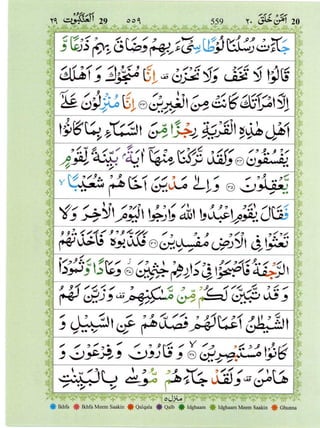 ٢٩ العنكبوت 29 ٥٥٩ 559 ٢٠ امن خلق 20
جَآءَتْ رُسُلُنَا لُوْطًا سِيْٓءَ بِهِمْ وَضَاقَ بِهِمْ ذَرْعًا وَّ
قَالُوْا لَا تَخَفْ وَلَا تَحْزَنْ اِنَّا مُنَجُّوْكَ وَ اَهْلَكَ
اِلَّا امْرَاَتَكَ كَانَتْ مِنَ الْغٰبِرِيْنَ ۝٣٣ اِنَّا مُنْزِلُوْنَ عَلٰٓى
اَهْلِ هٰذِهِ الْقَرْيَةِ رِجْزًا مِّنَ السَّمَآءِ بِمَا كَانُوْا
يَفْسُقُوْنَ ۝٣٤ وَلَقَدْ تَّرَكْنَا مِنْهَآ اٰيَةًۢ بَيِّنَةً لِّقَوْمٍ
يَّعْقِلُوْنَ ۝٣٥ وَاِلٰى مَدْيَنَ اَخَاهُمْ شُعَيْبًا
فَقَالَ يٰقَوْمِ اعْبُدُوا اللّٰهَ وَارْجُوا الْيَوْمَ الْاٰخِرَ وَلَا
تَعْثَوْا فِي الْاَرْضِ مُفْسِدِيْنَ ۝٣٦ فَكَذَّبُوْهُ فَاَخَذَتْهُمُ
الرَّجْفَةُ فَاَصْبَحُوْا فِيْ دَارِهِمْ جٰثِمِيْنَ ۝٣٧ وَعَادًا وَّثَمُوْدَا۟
وَ قَدْ تَّبَيَّنَ لَكُمْ مِّنْ مَّسٰكِنِهِمْ وَزَيَّنَ لَهُمُ
الشَّيْطٰنُ اَعْمَالَهُمْ فَصَدَّهُمْ عَنِ السَّبِيْلِ وَ
كَانُوْا مُسْتَبْصِرِيْنَ ۝٣٨ وَ قَارُوْنَ وَفِرْعَوْنَ وَ
هَامٰنَ وَلَقَدْ جَآءَهُمْ مُّوْسٰى بِالْبَيِّنٰتِ
منزل ٥
Ikhfa Ikhfa Meem Saakin Qalqala Qalb Idghaam Idghaam Meem Saakin Ghunna